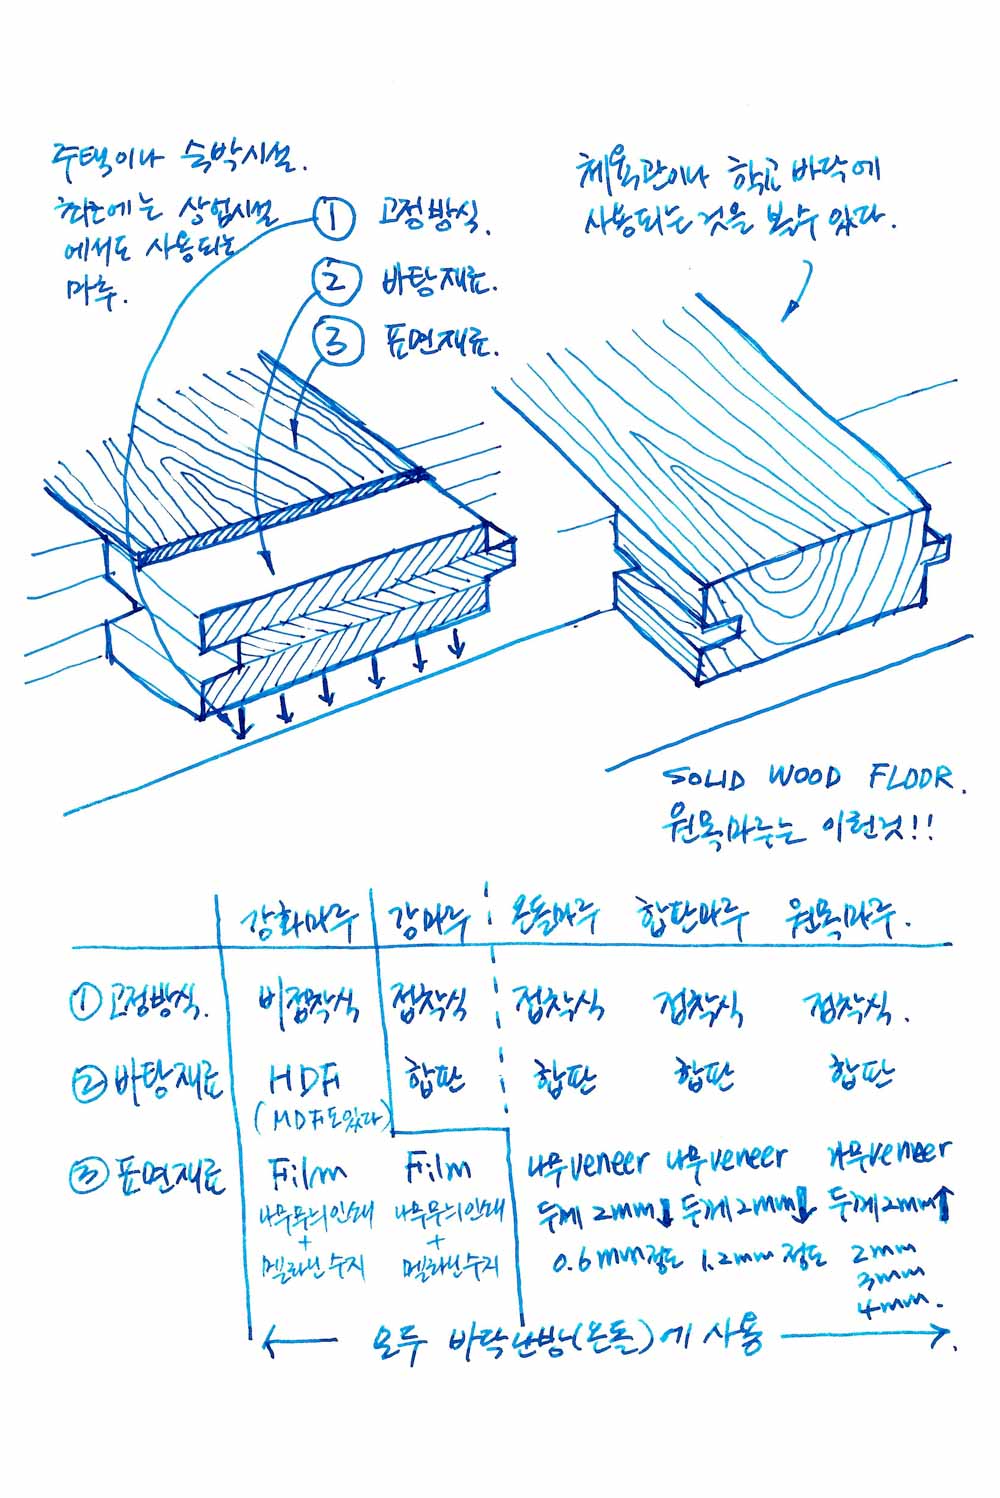 주택이나 숙박시설.
최근에는 상업시설
에서도 사용되는
마루.
① 고정방식.
② 바탕재료.
③ 표면재료.
체육관이나 학교 바닥에
사용되는 것을 볼수 있다.
SOLID WOOD FLOOR.
원목마루는 이런것!!
강화마루 강마루 온돌마루 합판마루 원목마루.
① 고정방식. 비접착식 접착식 접착식 접착식 접착식.
② 바탕재료 HDF 합판 합판 합판 합판
(MDF도있다)
③ 표면재료 Film Film 나무veneer 나무veneer 나무veneer
나무무늬인쇄 나무무늬인쇄 두께 2mm↓ 두께2mm↓ 두께2mm↑
+ + 0.6mm정도 1.2mm 정도 2mm
멜라민수지 멜라민수지 3mm
4mm.
← 모두 바닥난방(온돌)에 사용 →.